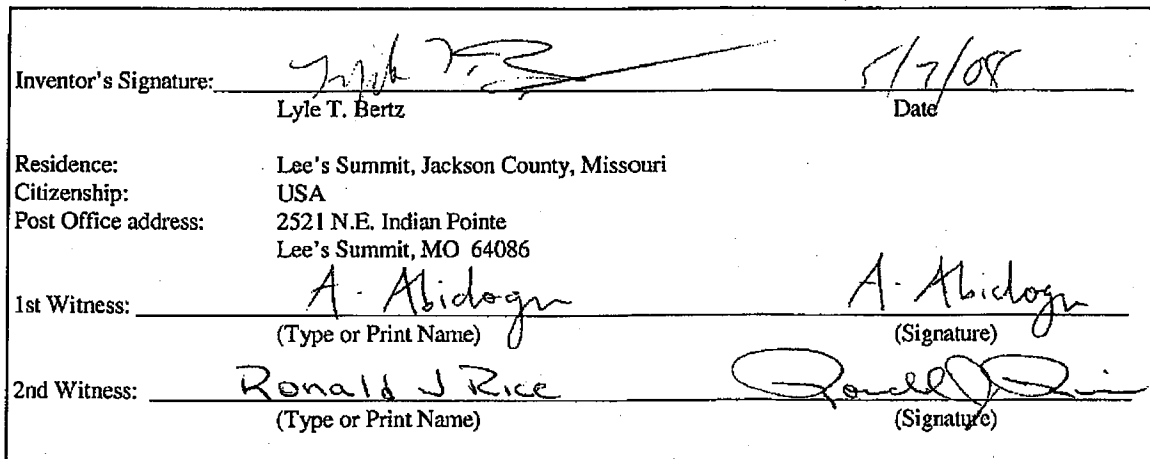 Inventor's Signature: 5/7/08
Lyle T. Bertz Date
Residence: Lee's Summit, Jackson County, Missouri
Citizenship: USA
Post Office address: 2521 N.E. Indian Pointe
Lee's Summit, MO 64086
1st Witness: A. Abidogun A. Abidogun
(Type or Print Name) (Signature)
2nd Witness: Ronald J Rice Ronald J Rice
(Type or Print Name) (Signature)